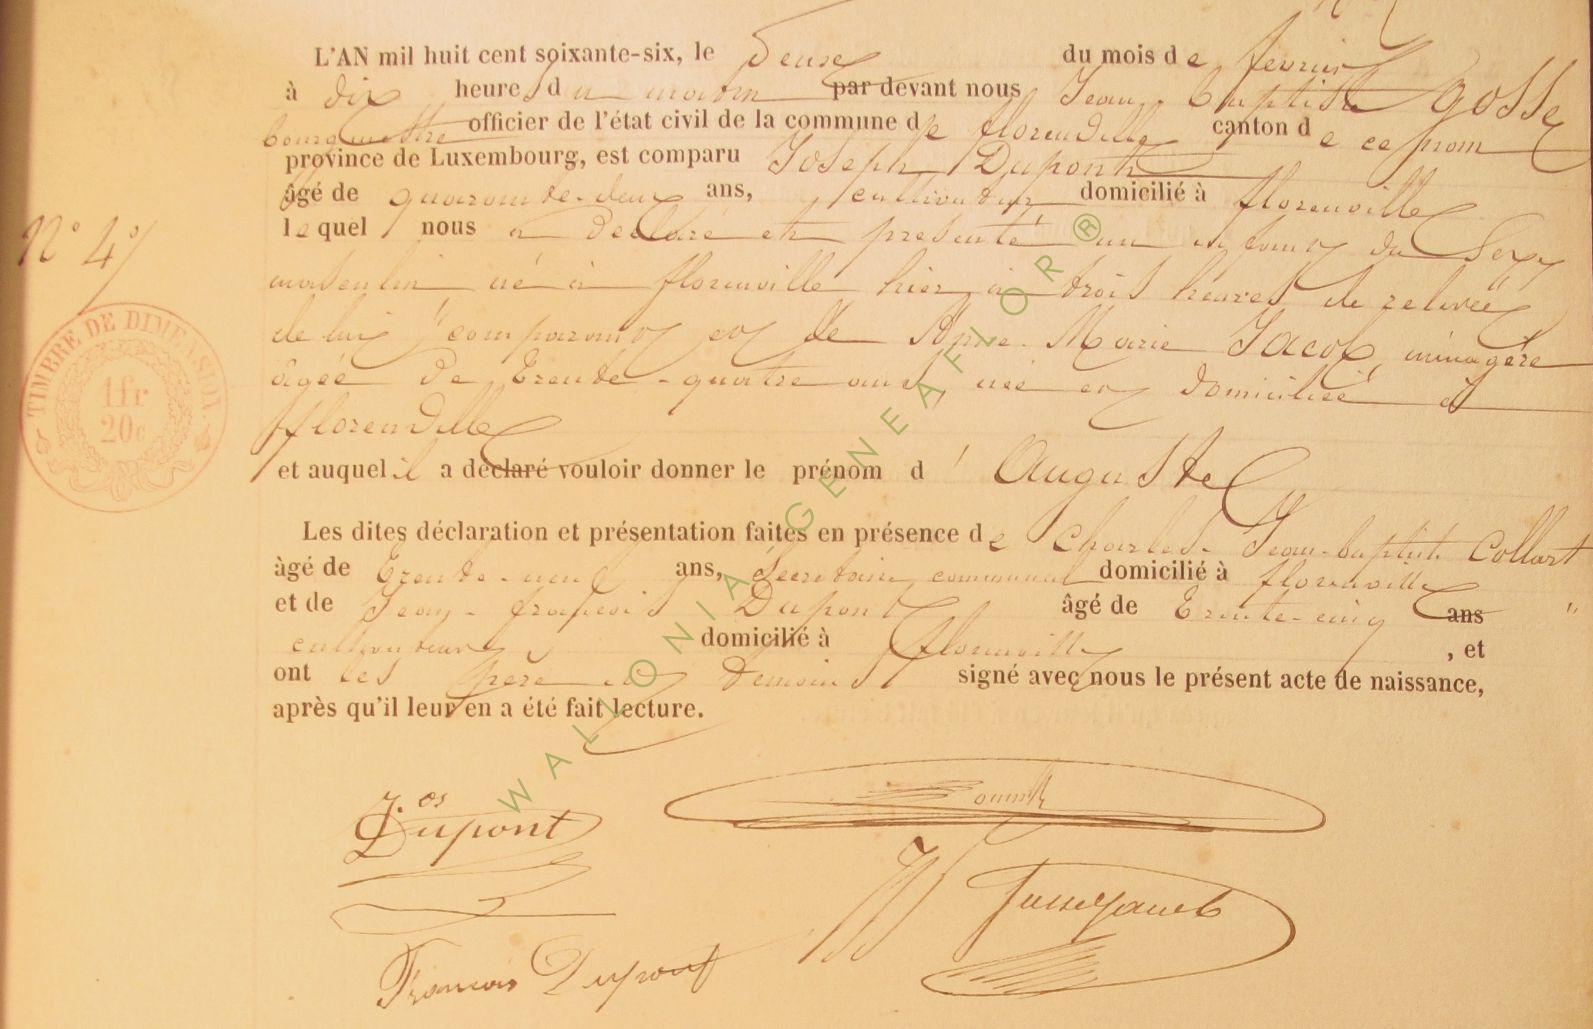 L'AN mil huit cent soixante-six, le Deuse du mois de fevrier
à dix heures du matin par devant nous Jean Baptiste Gosse
bourgmestre officier de l'état civil de la commune de florenville canton de ce nom
province de Luxembourg, est comparu Joseph Dupont
âgé de quarante-deux ans, cultivateur domicilié à florenville
lequel nous a déclaré et présenté un enfant du Sexe
N° 4
masculin né à florenville hier à trois heures de relevée
de lui comparant et de Anne Marie Jacob, ménagère
âgée de trente-quatre ans, née et domiciliée à
florenville
TIMBRE DE DIMENSION.
1fr
20c
et auquel il a déclaré vouloir donner le prénom d'Auguste
Les dites déclaration et présentation faites en présence de Charles Jean-baptiste Collart
âgé de trente-neuf ans, Secretaire communal domicilié à florenville
et de Jean-françois Dupont âgé de trente-cinq ans
cultivateur domicilié à florenville, et
ont les père et temoins signé avec nous le présent acte de naissance,
après qu'il leur en a été fait lecture.
Jos Dupont
François Dupont
WALLONIA-GENEAFLOR®